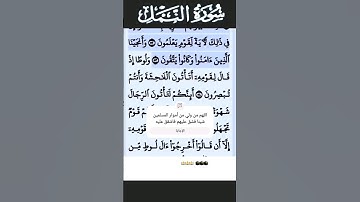 سُورَةُ النَّمْلِ
فِي ذَٰلِكَ لَآيَةً لِّقَوْمٍ يَعْلَمُونَ ٥٢ وَأَنجَيْنَا
الَّذِينَ ءَامَنُوا وَكَانُوا يَتَّقُونَ ٥٣ وَلُوطًا إِذْ
قَالَ لِقَوْمِهِ أَتَأْتُونَ الْفَاحِشَةَ وَأَنتُمْ
تُبْصِرُونَ ٥٤ أَئِنَّكُمْ لَتَأْتُونَ الرِّجَالَ
شَهْوَةً
اللهم من ولي من أمور المسلمين
شيئا فشق عليهم فاشقق عليه
قَوْمٌ
تَجْهَلُو
قَوْمِهِ
إِلَّا أَن قَالُوا أَخْرِجُوا ءَالَ لُوطٍ مِّن